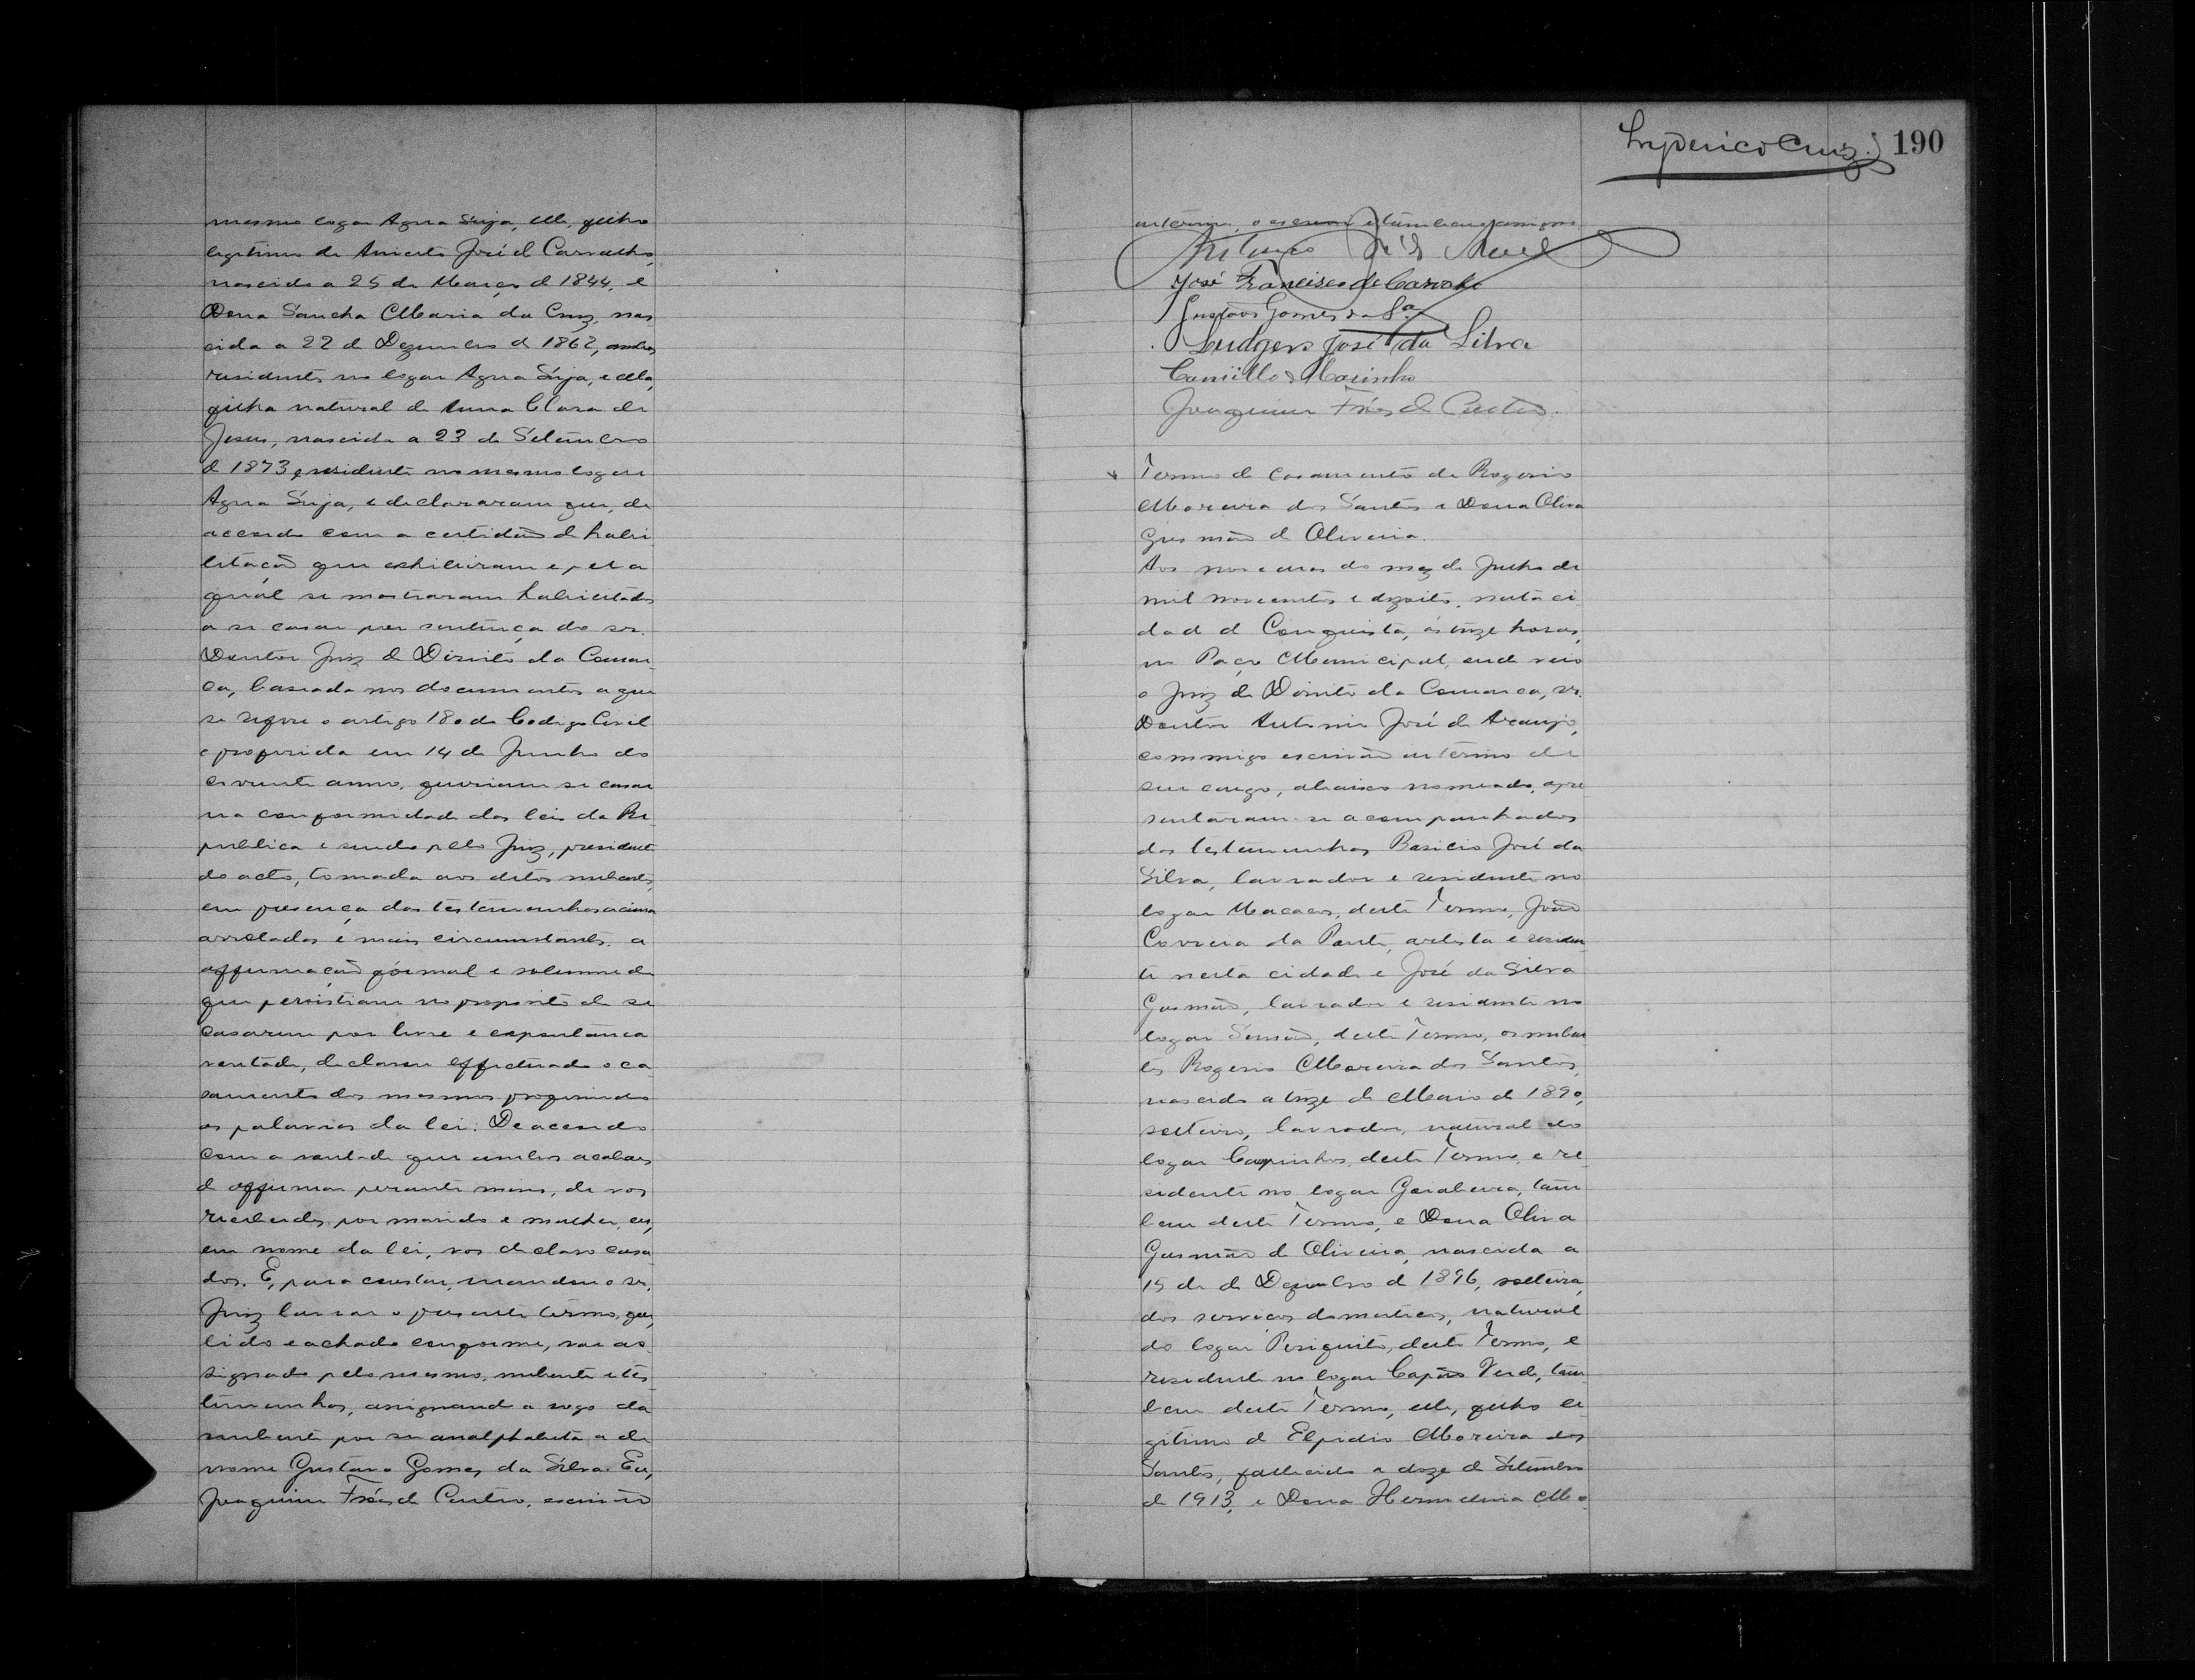 mesmo logar Agua Suja, elle, filho
legitimo de Aniceto José de Carvalho,
nascido a 25 de Março de 1844, e
Dona Sancha Maria da Cruz, nas
cida a 22 de Dezembro de 1862, ambos
residentes no logar Agua Suja, e ella,
filha natural de Anna Clara de
Jesus, nascida a 23 de Setembro
de 1873 e residente no mesmo logar
Agua Suja, e declararam que, de
accordo com a certidão de habi
litação que exhibiram e pela
qual se mostraram habilitados
a se casar por sentença do sr.
Doutor Juiz de Direito da Comar
ca, baseada nos documentos a que
se refere o artigo 180 do Codigo Civil
e proferida em 14 de Junho do
corrente anno, queriam se casar
na conformidade das leis da Re
publica e sendo pelo Juiz, presidente
do acto, tomada aos ditos nubentes,
em presença das testemunhas acima
arroladas e mais circumstantes, a
affirmação formal e solemne de
que persistiam no proposito de se
casarem por livre e espontanea
vontade, declarou effectuado o ca
samento dos mesmos proferindo
as palavras da lei: De accordo
com a vontade que ambos acabaes
de affirmar perante mim, de vos
receberdes por marido e mulher, eu,
em nome da lei, vos declaro casa
dos. E, para constar, mandou o sr.
Juiz lavrar o presente termo, que,
lido e achado conforme, vae as
signado pelo mesmo, nubente e tes
temunhas, assignando a rogo da
nubente por ser analphabeta a de
nome Gustavo Gomes da Silva. Eu,
Joaquim Fróes de Castro, escrivão
190
interino, o escrevi e tambem assigno.
José Francisco de Carvalho
Gustavo Gomes da Sª
Ludgero José da Silva
Camillo Marinho
Joaquim Fróes de Castro.
Termo de casamento de Rogerio
Moreira dos Santos e Dona Oliva
Gusmão de Oliveira.
Aos nove dias do mez de Julho de
mil novecentos e dezoito, nesta ci
dade de Conquista, ás treze horas,
no Paço Municipal, onde veio
o Juiz de Direito da Comarca, sr.
Doutor Antonio José de Araujo,
commigo escrivão interino de
seu cargo, abaixo nomeado, apre
sentaram-se acompanhados
das testemunhas Basicio José da
Silva, lavrador e residente no
logar Macacos, deste Termo, João
Correia da Ponte, artista e residen
te nesta cidade e José da Silva
Gusmão, lavrador e residente no
logar Simão, deste Termo, os nuben
tes Rogerio Moreira dos Santos,
nascido a treze de Maio de 1890,
solteiro, lavrador, natural do
logar Campinhos, deste Termo, e re
sidente no logar Gerabeira, tam
bem deste Termo, e Dona Oliva
Gusmão de Oliveira, nascida a
15 de de Dezembro de 1896, solteira,
dos serviços domesticos, natural
do logar Periquito, deste Termo, e
residente no logar Capão Verde, tam
bem deste Termo, elle, filho le
gitimo de Elpidio Moreira dos
Santos, fallecido a doze de Setembro
de 1913, e Dona Hermelina Mo